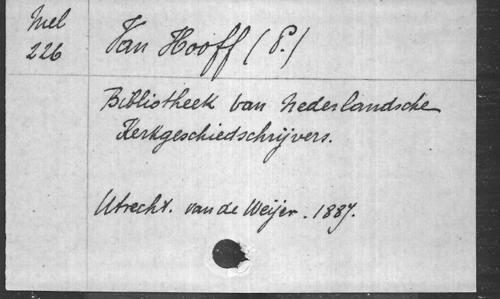 Mel
226
Van Hooff (P.)
Bibliotheek van Nederlandsche
Kerkgeschiedschrijvers.
Utrecht. van de Weijer. 1887.